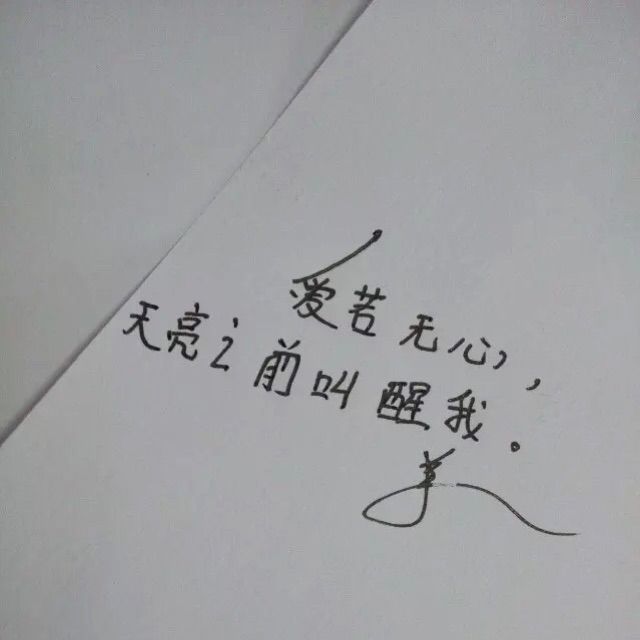 爱若无心，
天亮之前叫醒我。